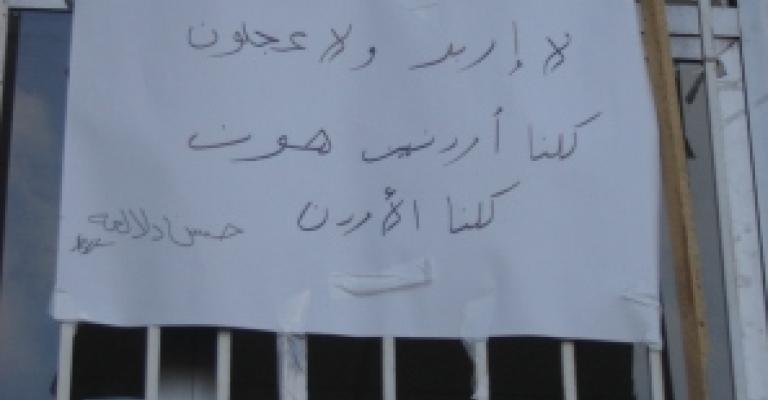 لا إربد ولا عجلون
كلنا أردنيين هون
كلنا الأردن
حسن دلالعه